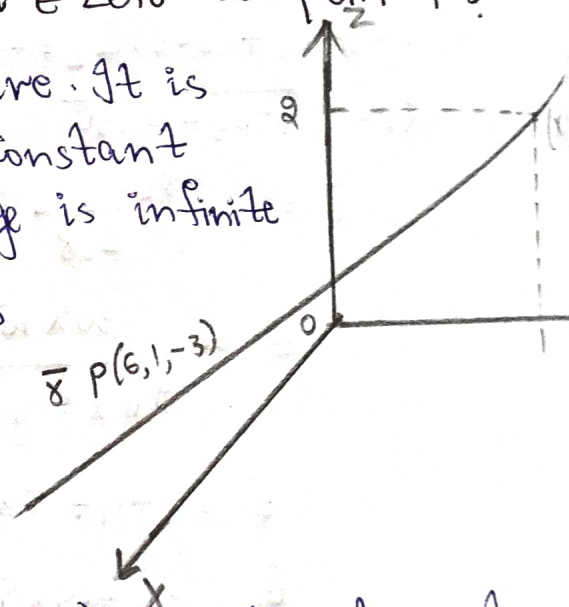 Z
re. It is
2
onstant
is infinite
0
r̄ P(6,1,-3)
X